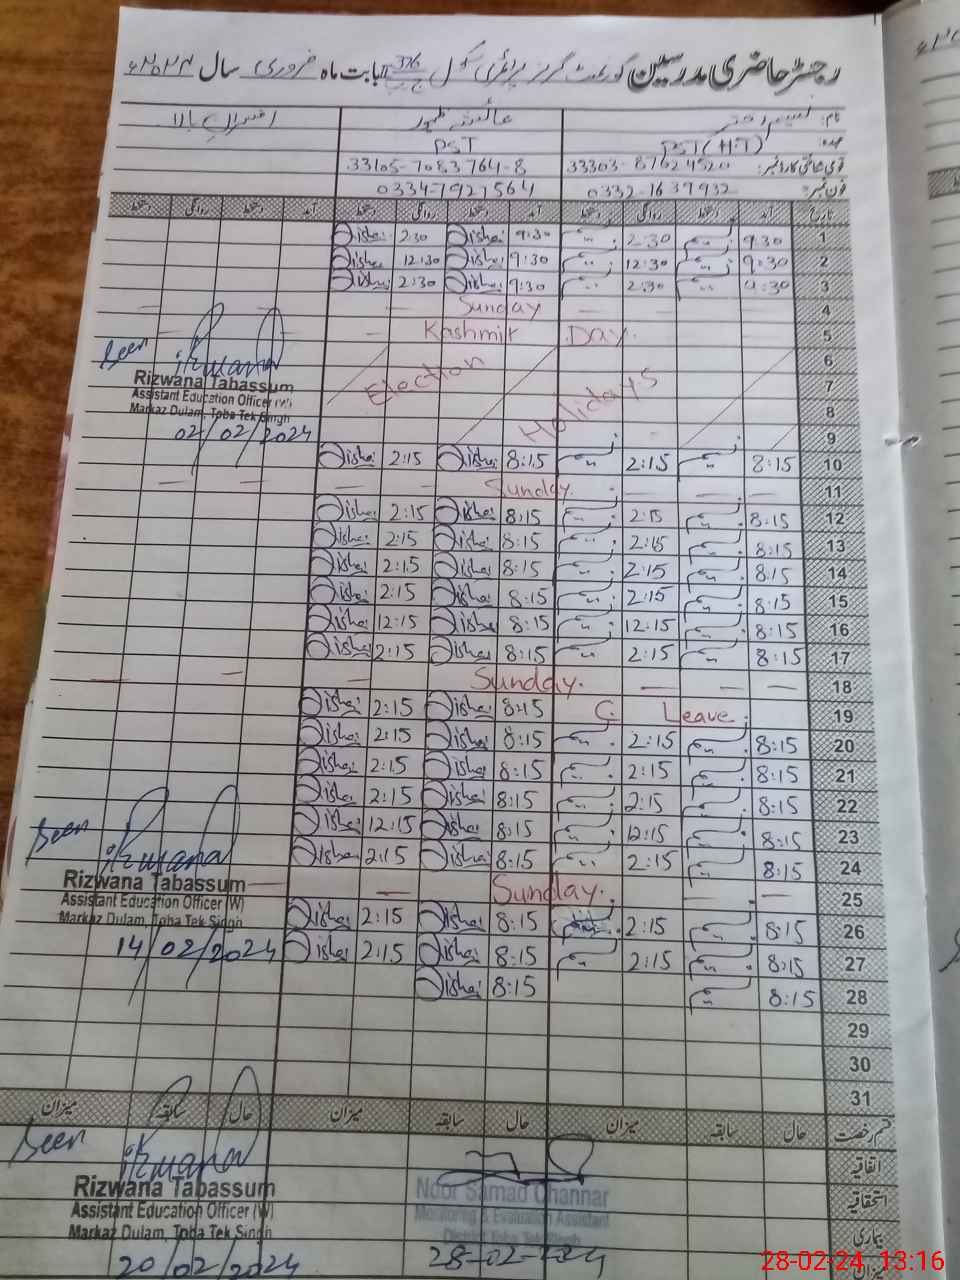 رجسٹر حاضری مدرسین گورنمنٹ گرلز پرائمری سکول 376 ج ب بابت ماہ فروری سال 2024ء
نام: نسیم اختر عائشہ ظہور افسران بالا
عہدہ: PST (H.T) PST
قومی شناختی کارڈ نمبر: 33303-87624520 33105-7083764-8
فون نمبر: 0332-1639932 0334-7921564
تاریخ آمد دستخط روانگی دستخط آمد دستخط روانگی دستخط آمد دستخط روانگی دستخط
1 9:30 2:30 9:30 Aisha 2:30 Aisha
2 9:30 12:30 9:30 Aisha 12:30 Aisha
3 9:30 2:30 9:30 Aisha 2:30 Aisha
4 Sunday
5 Kashmir Day.
6
7 Election Holidays
8
9
10 8:15 2:15 8:15 Aisha 2:15 Aisha
11 Sunday.
12 8:15 2:15 8:15 Aisha 2:15 Aisha
13 8:15 2:15 8:15 Aisha 2:15 Aisha
14 8:15 2:15 8:15 Aisha 2:15 Aisha
15 8:15 2:15 8:15 Aisha 2:15 Aisha
16 8:15 12:15 8:15 Aisha 12:15 Aisha
17 8:15 2:15 8:15 Aisha 2:15 Aisha
18 Sunday.
19 C. Leave. 8:15 Aisha 2:15 Aisha
20 8:15 2:15 8:15 Aisha 2:15 Aisha
21 8:15 2:15 8:15 Aisha 2:15 Aisha
22 8:15 2:15 8:15 Aisha 2:15 Aisha
23 8:15 12:15 8:15 Aisha 12:15 Aisha
24 8:15 2:15 8:15 Aisha 2:15 Aisha
25 Sunday.
26 8:15 2:15 8:15 Aisha 2:15 Aisha
27 8:15 2:15 8:15 Aisha 2:15 Aisha
28 8:15 8:15 Aisha
29
30
31
Seen Rizwana
Rizwana Tabassum
Assistant Education Officer (W)
Markaz Dulam, Toba Tek Singh
02/02/2024
Seen Rizwana
Rizwana Tabassum
Assistant Education Officer (W)
Markaz Dulam, Toba Tek Singh
14/02/2024
قسم رخصت حال سابقہ میزان حال سابقہ میزان حال سابقہ میزان
اتفاقیہ
استحقاقیہ
بیماری
میزان
Seen Rizwana
Rizwana Tabassum
Assistant Education Officer (W)
Markaz Dulam, Toba Tek Singh
20/02/2024
Noor Samad Channar
Monitoring & Evaluation Assistant
District Toba Tek Singh
28-02-2024
28-02-24 13:16